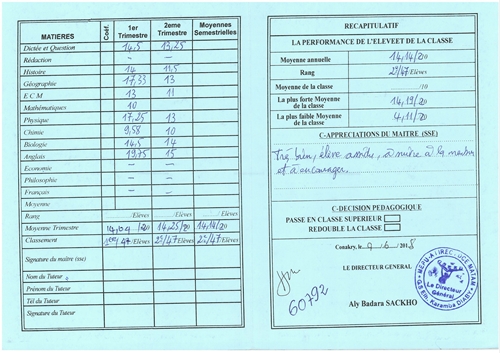 MATIERES Coef. 1er Trimestre 2eme Trimestre Moyennes Semestrielles
Dictée et Question 14,5 13,25
Rédaction - -
Histoire 14 11,5
Géographie 17,33 13
E C M 13 11
Mathématiques 10
Physique 17,25 13
Chimie 9,58 10
Biologie 14,5 14
Anglais 19,75 15
Economie - -
Philosophie - -
Français - -
Moyenne
Rang /Elèves /Elèves /Elèves
Moyenne Trimestre /20 14,25/20 14,14/20
Classement /47/Elèves 2e/47 Elèves 2e/47 Elèves
Signature du maître (sse)
Nom du Tuteur
Prénom du Tuteur
Tél du Tuteur
Signature du Tuteur
RECAPITULATIF
LA PERFORMANCE DE L'ELEVE ET DE LA CLASSE
Moyenne annuelle 14,14/20
Rang 2e/47 Elèves
Moyenne de la classe /10
La plus forte Moyenne de la classe 14,19/20
La plus faible Moyenne de la classe 4,11/20
C-APPRECIATIONS DU MAITRE (SSE)
Très bien, élève assidu,
et à encourager.
C-DECISION PEDAGOGIQUE
PASSE EN CLASSE SUPERIEUR
REDOUBLE LA CLASSE
Conakry, le 9/6/2018
LE DIRECTEUR GENERAL
60792
Aly Badara SACKHO
Le Directeur
Général